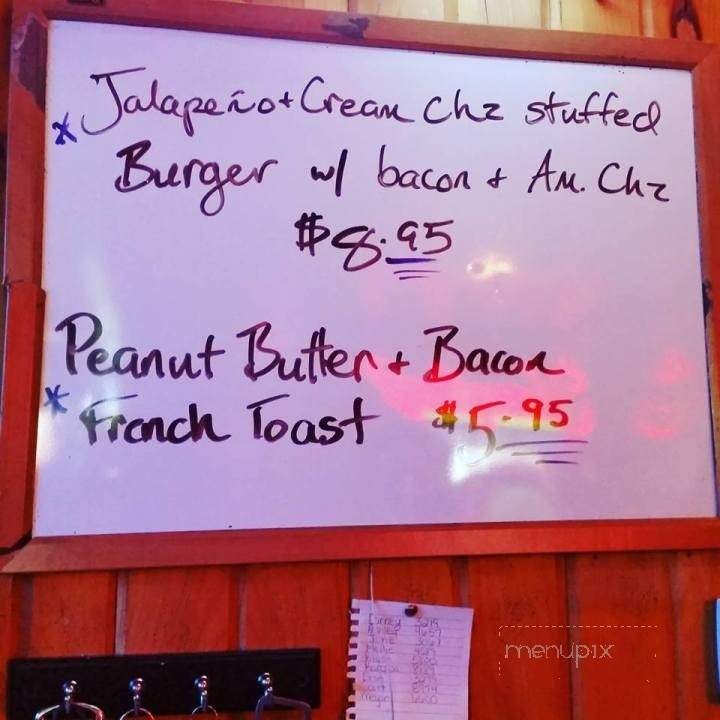 Jalapeño + Cream Chz stuffed
* Burger w/ bacon + Am. Chz
$8.95
Peanut Butter + Bacon
* French Toast $5.95
menupix